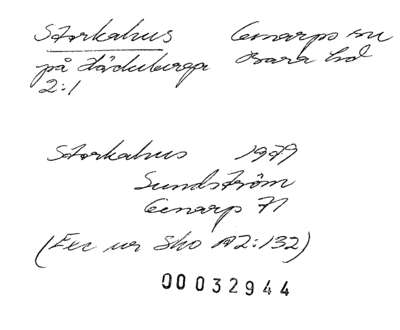 Storkahus Genarps sn
på Häckeberga Bara hd
2:1
Storkahus 1979
Sundström
Genarp 71
(Exc ur Sko A2:132)
00032944